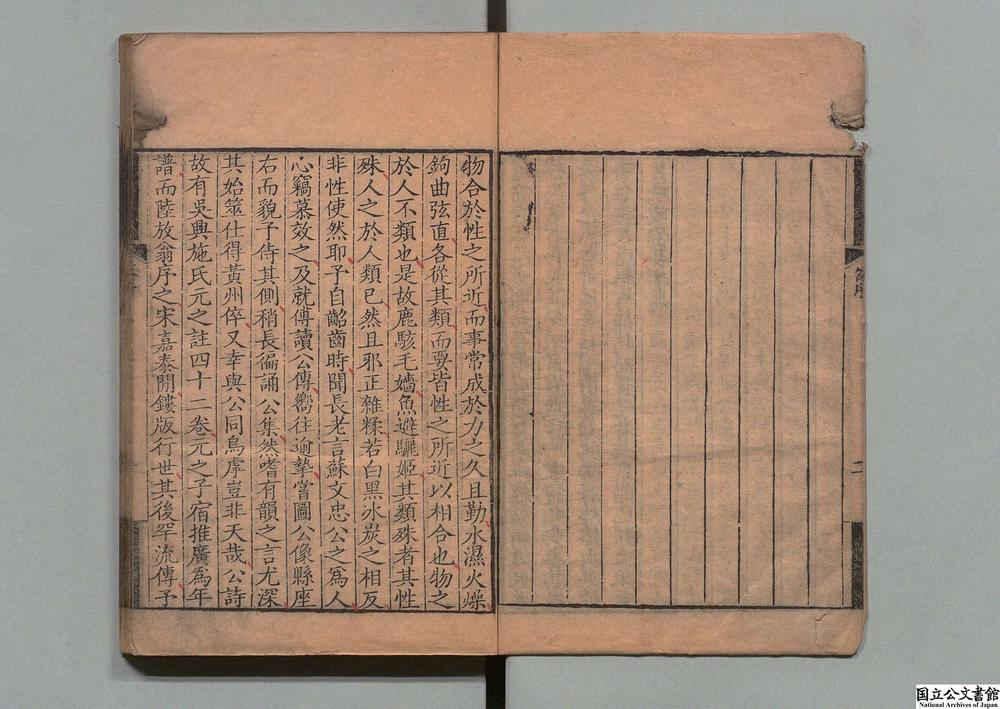 物合於性之所近而事常成於力之久且勤水濕火燥
鉤曲弦直各從其類而要皆性之所近以相合也物之
於人不類也是故鹿駭毛嬙魚避驪姬其類殊者其性
殊人之於人類已然且邪正雜糅若白黑冰炭之相反
非性使然耶予自齠齒時聞長老言蘇文忠公之為人
心竊慕效之及就傅讀公傳嚮往逾摯嘗圖公像縣座
右而貌予侍其側稍長徧誦公集然嗜有韻之言尤深
其始筮仕得黃州倅又幸與公同烏虖豈非天哉公詩
故有吳興施氏元之註四十二卷元之子宿推廣為年
譜而陸放翁序之宋嘉泰閒鏤版行世其後罕流傳予
序
二
国立公文書館
National Archives of Japan